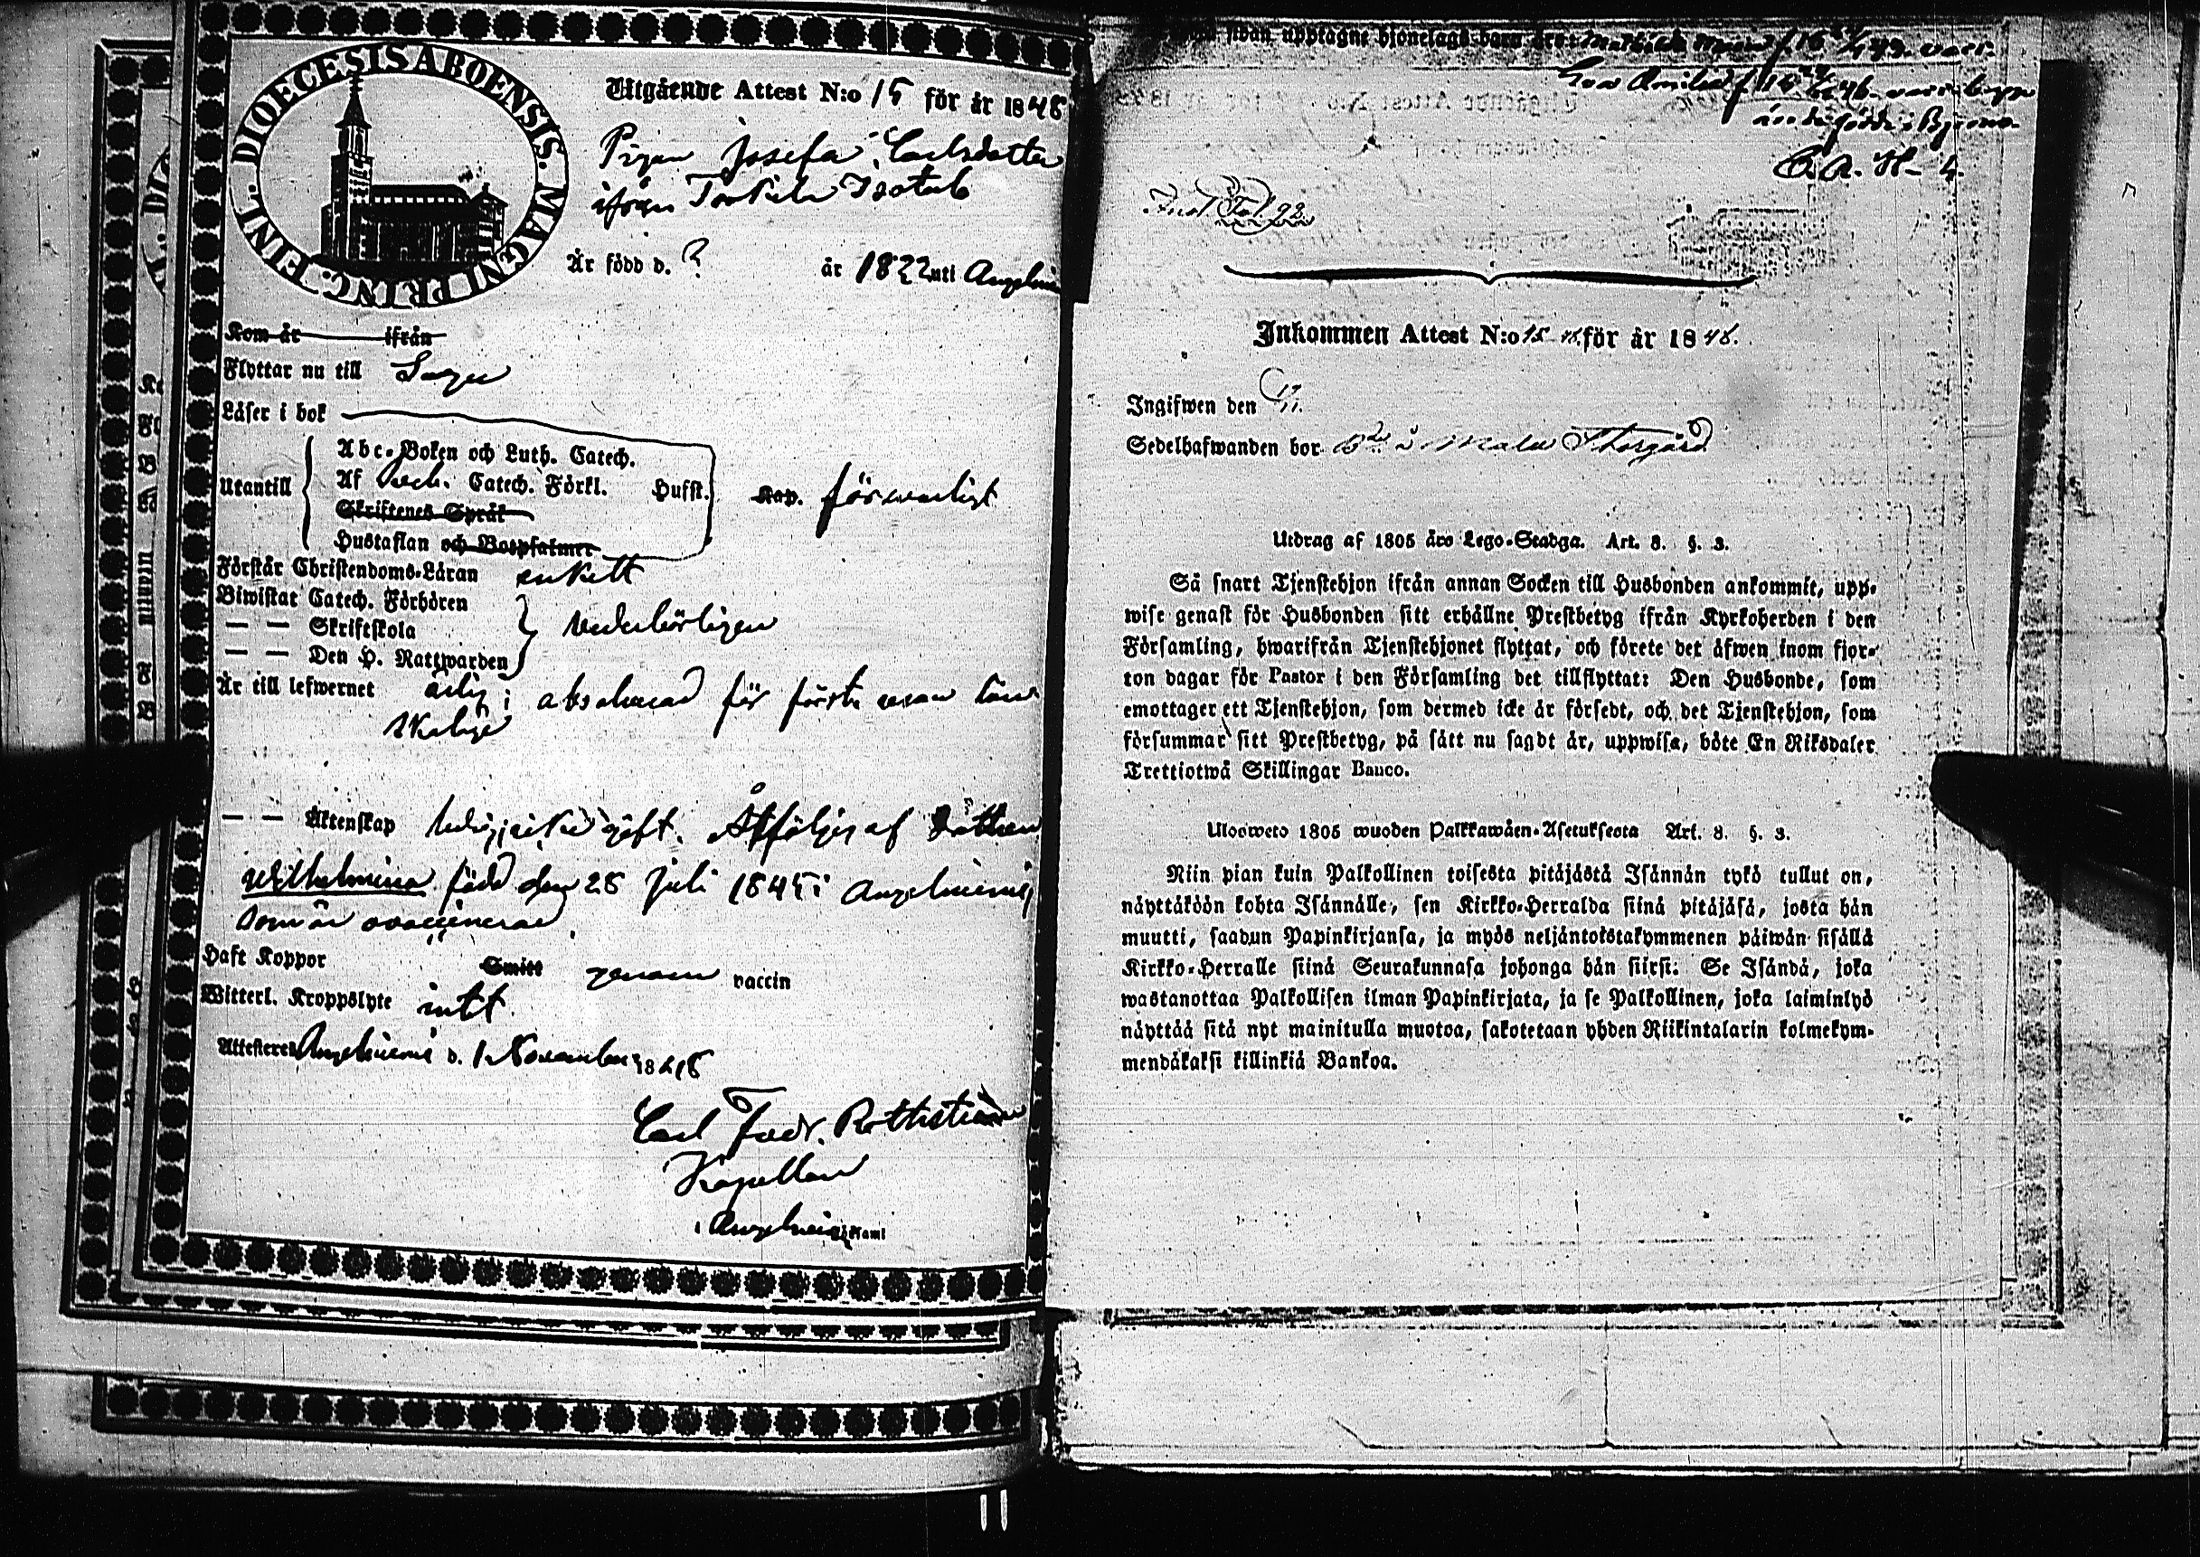 FINL. DIOECESIS ABOENSIS. MAGNI PRINC.
Utgående Attest N:o 15 för år 1848
Pigan Josefa Carlsdotter
ifrån Torkila
Är född d. ? år 1822 uti Angelniemi
Kom år ifrån
Flyttar nu till
Läser i bok
Utantill
Abc-Boken och Luth. Catech.
Af Catech. Förkl. Husst. Kap. försvarligt
Skriftenes Språk
Hustaflan och Botpsalmer
Förstår Christendoms-Läran enkelt
Biwistat Catech. Förhören
— — Skriftskola vederbörligen
— — Den H. Nattwarden
Är till lefwernet ärlig; absolverad för första resan löne
skaläge
— — Äktenskap ledig icke gift. Åtföljes af dottren
Wilhelmina född den 28 Juli 1845 i Angelniemi,
som är vaccinerad
Haft Koppor Smitt genom vaccin
Witterl. Kroppslyte intet
Attesteres Angelniemi d. 1 November 1848
Carl Fredr. Rothström
Kapellan
i Angelniemi
Eva
födde i Bjerno
Inst. Fol. 92
Inkommen Attest N:o 15 för år 1848.
Ingifwen den 17/11.
Sedelhafwanden bor Storgård
Utdrag af 1805 års Lego-Stadga. Art. 3. §. 3.
Så snart Tjenstehjon ifrån annan Socken till Husbonden ankommit, upp-
wise genast för Husbonden sitt erhållne Prestbetyg ifrån Kyrkoherden i den
Församling, hwarifrån Tjenstehjonet flyttat, och förete det äfwen inom fjor-
ton dagar för Pastor i den Församling det tillflyttat: Den Husbonde, som
emottager ett Tjenstehjon, som dermed icke är försedt, och det Tjenstehjon, som
försummar sitt Prestbetyg, på sätt nu sagdt är, uppwisa, böte En Riksdaler
Trettiotwå Skillingar Banco.
Ulosweto 1805 wuoden Palkkawäen-Asetuksesta Art. 3. §. 3.
Niin pian kuin Palkollinen toisesta pitäjästä Isännän tykö tullut on,
näyttäköön kohta Isännälle, sen Kirkko-Herralda siinä pitäjäsä, josta hän
muutti, saadun Papinkirjansa, ja myös neljäntoistakymmenen päiwän sisällä
Kirkko-Herralle siinä Seurakunnasa johonga hän siirsi: Se Isändä, joka
wastanottaa Palkollisen ilman Papinkirjata, ja se Palkollinen, joka laiminlyö
näyttää sitä nyt mainitulla muotoa, sakotetaan yhden Riikintalarin kolmekym-
mendäkaksi killinkiä Bankoa.